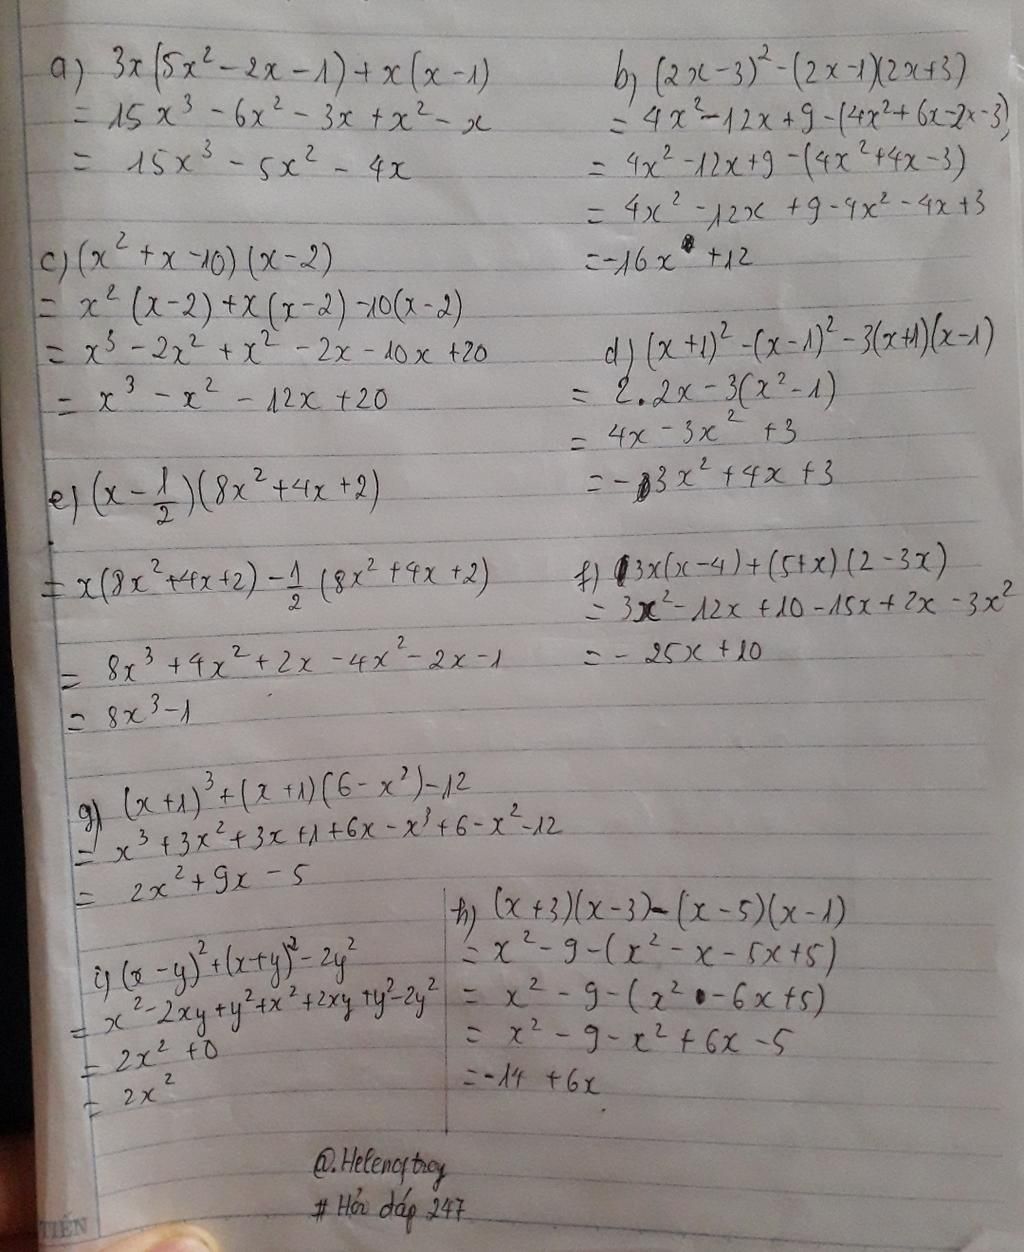 a) 3x(5x² - 2x - 1) + x(x - 1)
= 15x³ - 6x² - 3x + x² - x
= 15x³ - 5x² - 4x
b) (2x - 3)² - (2x - 1)(2x + 3)
= 4x² - 12x + 9 - (4x² + 6x - 2x - 3)
= 4x² - 12x + 9 - (4x² + 4x - 3)
= 4x² - 12x + 9 - 4x² - 4x + 3
= -16x + 12
c) (x² + x - 10)(x - 2)
= x²(x - 2) + x(x - 2) - 10(x - 2)
= x³ - 2x² + x² - 2x - 10x + 20
= x³ - x² - 12x + 20
d) (x + 1)² - (x - 1)² - 3(x + 1)(x - 1)
= 2.2x - 3(x² - 1)
= 4x - 3x² + 3
= -3x² + 4x + 3
e) (x - 1/2)(8x² + 4x + 2)
= x(8x² + 4x + 2) - 1/2 (8x² + 4x + 2)
= 8x³ + 4x² + 2x - 4x² - 2x - 1
= 8x³ - 1
f) 3x(x - 4) + (5 + x)(2 - 3x)
= 3x² - 12x + 10 - 15x + 2x - 3x²
= - 25x + 10
g) (x + 1)³ + (x + 1)(6 - x²) - 12
= x³ + 3x² + 3x + 1 + 6x - x³ + 6 - x² - 12
= 2x² + 9x - 5
h) (x + 3)(x - 3) - (x - 5)(x - 1)
= x² - 9 - (x² - x - 5x + 5)
= x² - 9 - (x² - 6x + 5)
= x² - 9 - x² + 6x - 5
= -14 + 6x
i) (x - y)² + (x + y)² - 2y²
= x² - 2xy + y² + x² + 2xy + y² - 2y²
= 2x² + 0
= 2x²
@.Helenoftroy
# Hỏi đáp 247
TIẾN